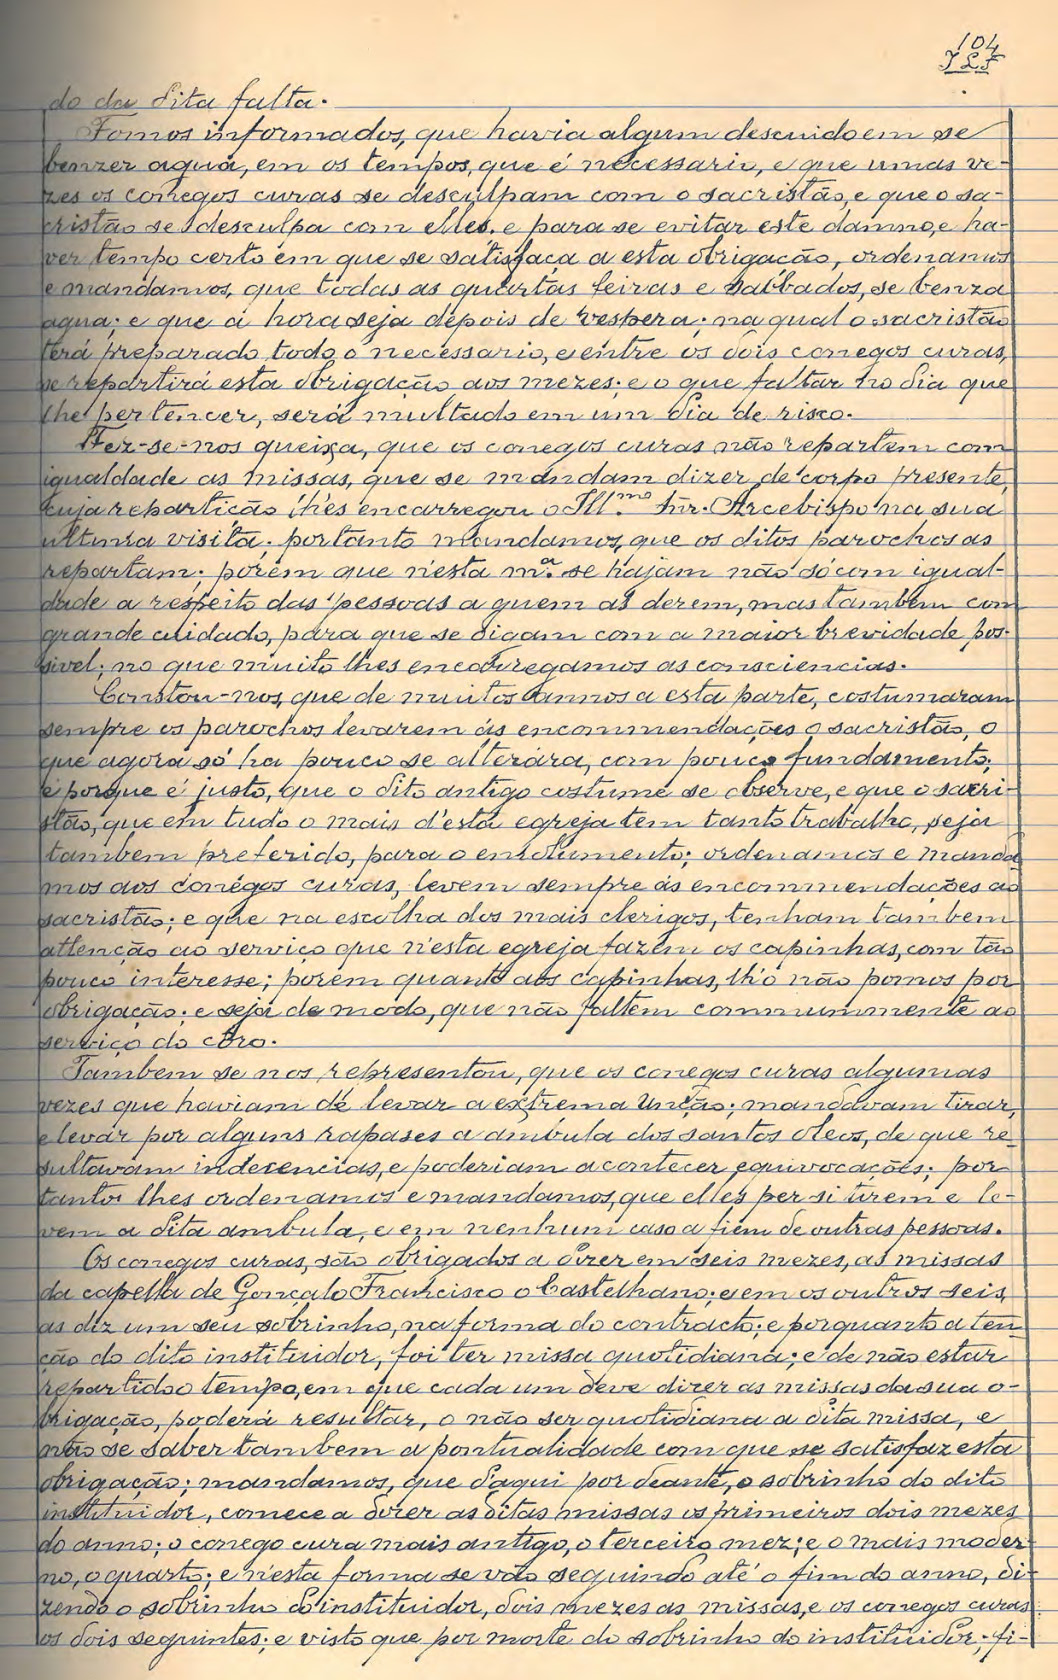 104
J L F
do da dita falta.
Fomos informados, que havia algum descuido em se
benzer agua, em os tempos, que é necessario, e que umas ve-
zes os conegos curas se desculpam com o sacristão, e que o sa-
cristão se desculpa com elles. e para se evitar este damno, e ha-
ver tempo certo em que se satisfaça a esta obrigação, ordenamos
e mandamos, que todas as quartas feiras e sabbados, se benza
agua; e que a hora seja depois de vespera; na qual o sacristão
terá preparado todo o necessario, e entre os dois conegos curas,
se repartirá esta obrigação aos mezes; e o que faltar no dia que
lhe pertencer, será multado em um dia de risco.
Fez-se-nos queixa, que os conegos curas não repartem com
igualdade as missas, que se mandam dizer de corpo presente,
cuja repartição lhes encarregou o Ill.mo Snr. Arcebispo na sua
ultima visita; portanto mandamos, que os ditos parochos as
repartam; porém que n'esta m.a se hajam não só com igual-
dade a respeito das pessoas a quem as derem, mas tambem com
grande cuidado, para que se digam com a maior brevidade pos-
sivel; no que muito lhes encarregamos as consciencias.
Constou-nos, que de muitos annos a esta parte, costumaram
sempre os parochos levarem ás encommendações o sacristão, o
que agora só ha pouco se alterára, com pouco fundamento;
e porque é justo, que o dito antigo costume se observe, e que o sacri-
stão, que em tudo o mais d'esta egreja tem tanto trabalho, seja
tambem preferido, para o emolumento; ordenamos e manda-
mos aos conegos curas, levem sempre ás encommendações ao
sacristão; e que na escolha dos mais clerigos, tenham tambem
attenção ao serviço que n'esta egreja fazem os capinhas, com tão
pouco interesse; porém quanto aos capinhas, lh'o não pomos por
obrigação; e seja de modo, que não faltem commummente ao
serviço do côro.
Tambem se nos representou, que os conegos curas algumas
vezes que haviam de levar a extrema Unção; mandavam tirar,
e levar por alguns rapases a ambula dos santos oleos, de que re-
sultavam indecencias, e poderiam acontecer equivocações; por
tanto lhes ordenamos e mandamos, que elles per si tirem e le-
vem a dita ambula, e em nenhum caso a fiem de outras pessoas.
Os conegos curas, são obrigados a dizer em seis mezes, as missas
da capella de Gonçalo Francisco o Castelhano; e em os outros seis,
as diz um seu sobrinho, na forma do contracto; e porquanto a ten-
ção do dito instituidor, foi ter missa quotidiana; e de não estar
repartido o tempo, em que cada um deve dizer as missas da sua o-
brigação, poderá resultar, o não ser quotidiana a dita missa, e
não se saber tambem a pontualidade com que se satisfaz esta
obrigação; mandamos, que d'aqui por deante, o sobrinho do dito
instituidor, comece a dizer as ditas missas os primeiros dois mezes
do anno; o conego cura mais antigo, o terceiro mez; e o mais moder-
no, o quarto; e n'esta forma se vão seguindo até o fim do anno, di-
zendo o sobrinho do instituidor, dois mezes as missas, e os conegos curas
os dois seguintes; e visto que por morte do sobrinho do instituidor, fi-